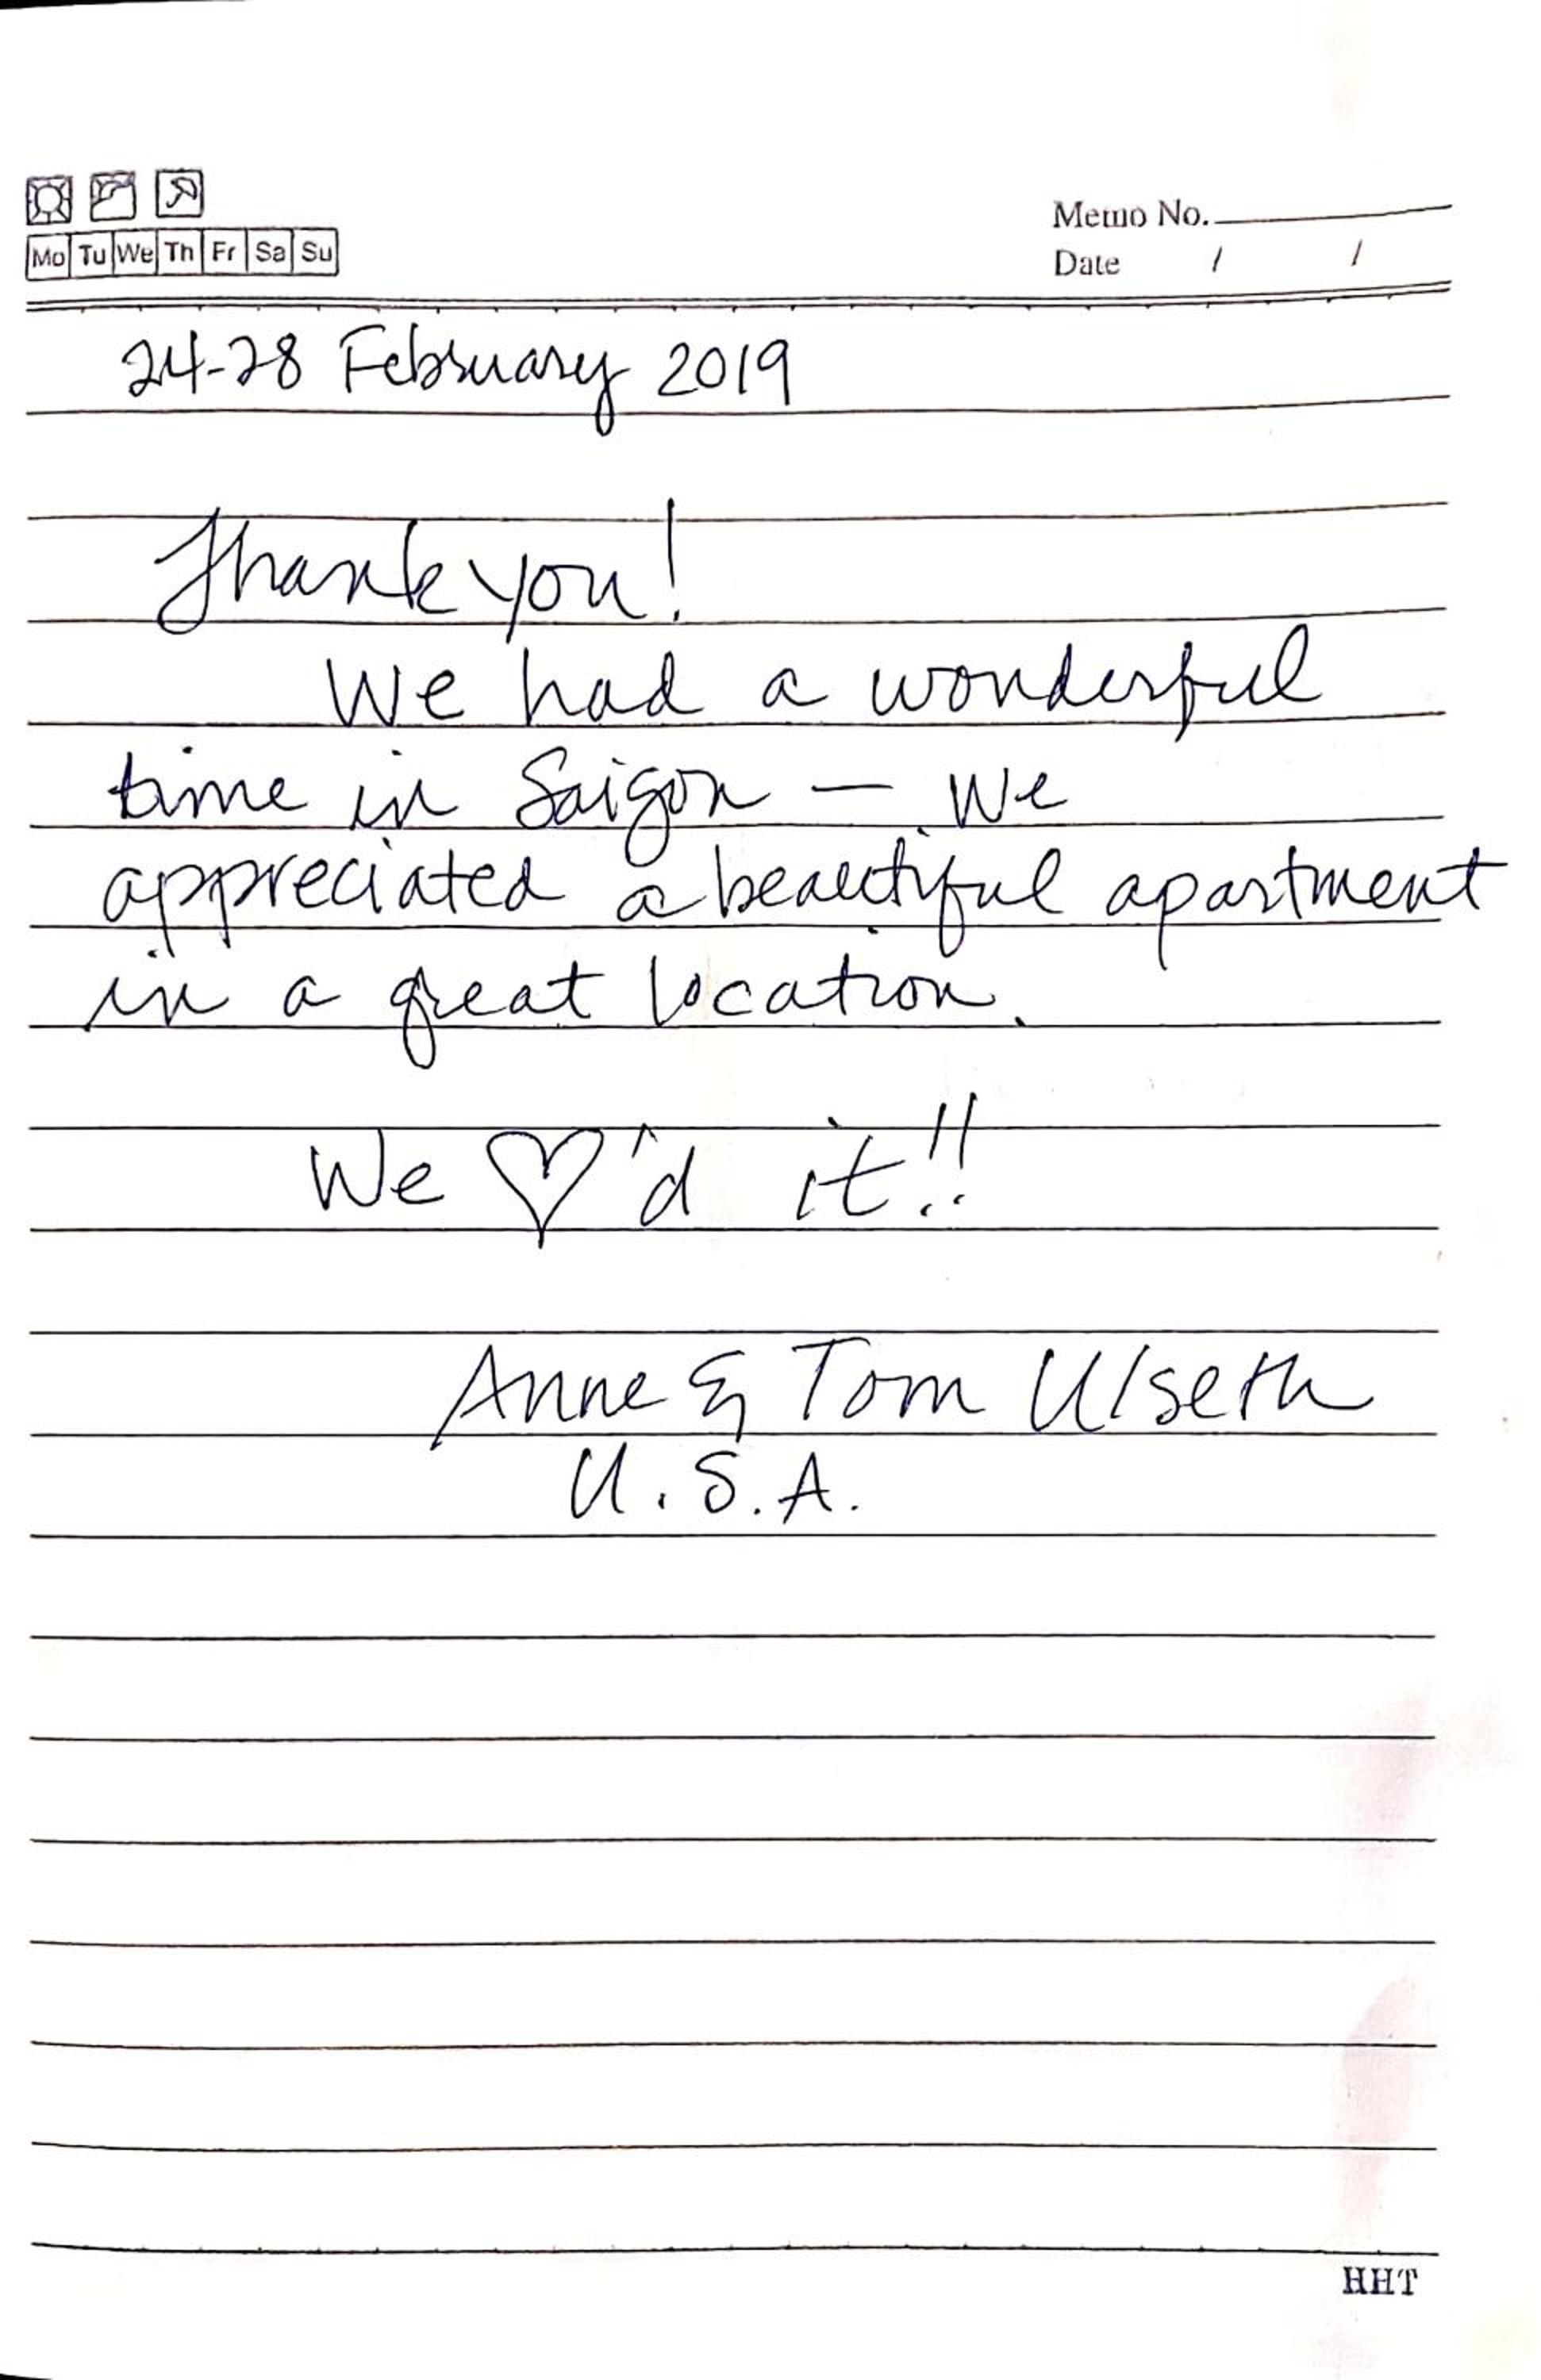 Memo No.
Mo Tu We Th Fr Sa Su
Date / /
24-28 February 2019
Thank you!
We had a wonderful
time in Saigon — We
appreciated a beautiful apartment
in a great location.
We ♡'d it!!
Anne & Tom Ulseth
U.S.A.
HHT